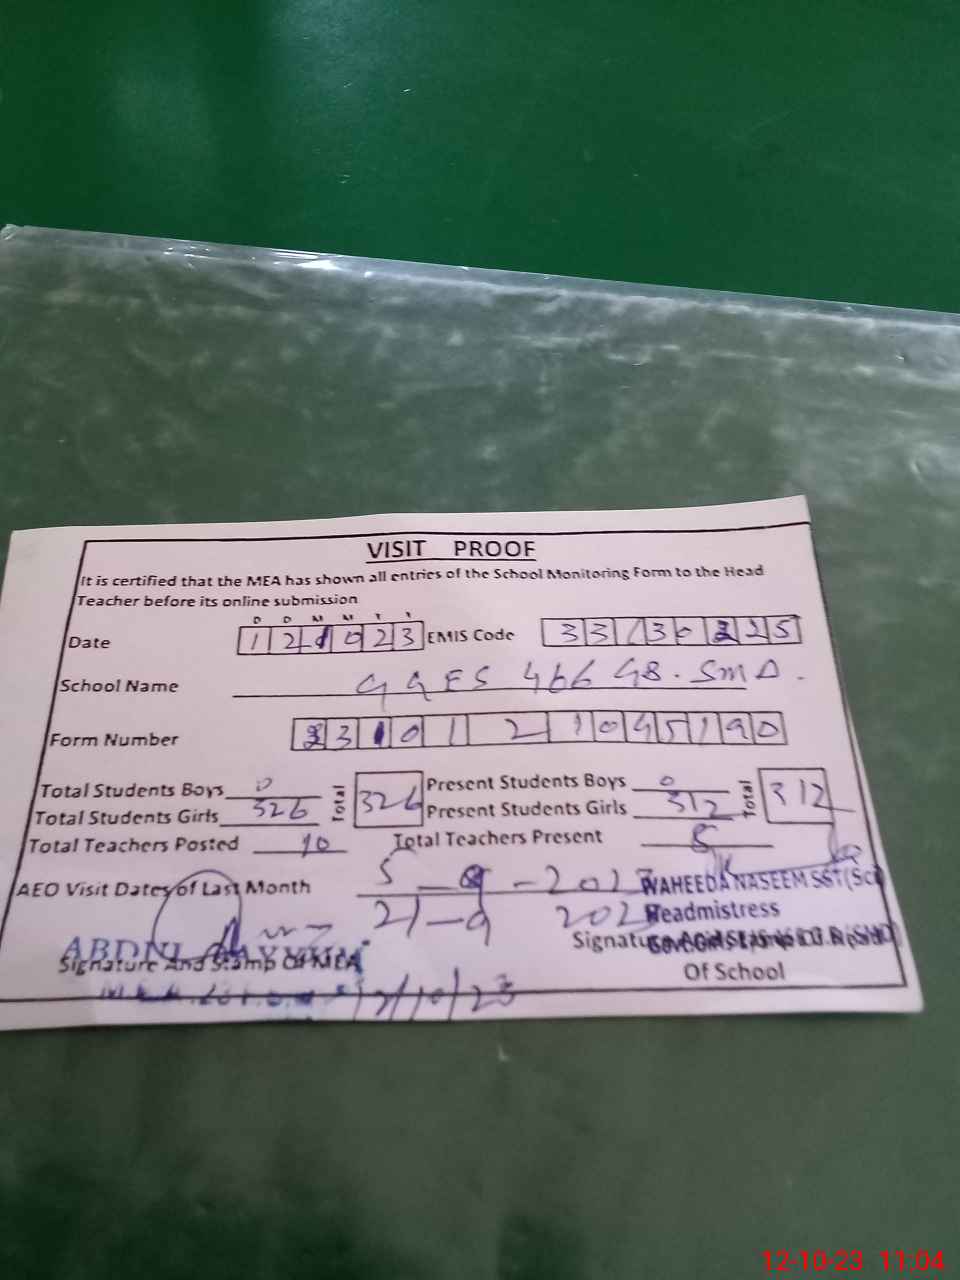 VISIT PROOF
It is certified that the MEA has shown all entries of the School Monitoring Form to the Head
Teacher before its online submission
D D M M Y Y
Date 12 10 23 EMIS Code 33130225
School Name GGES 466 GB. SMD.
Form Number 2310121045190
Total Students Boys 0 Total 326 Present Students Boys 0 Total 312
Total Students Girls 326 Present Students Girls 312
Total Teachers Posted 10 Total Teachers Present 8
AEO Visit Dates of Last Month 5-9-2023
21-9 2023
WAHEEDA NASEEM SST(Sci)
Headmistress
Signature And Stamp Of MEA
Signature And Stamp
Of School
12/10/23
12-10-23 11:04